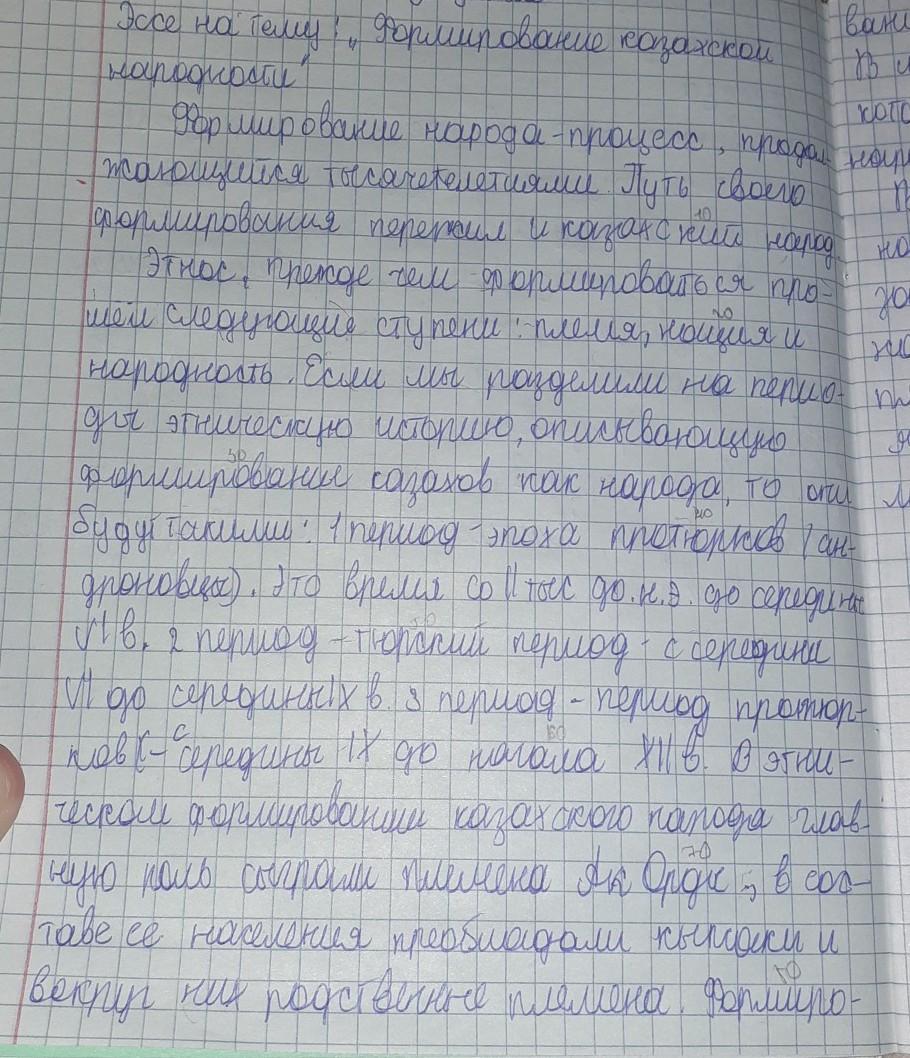 Эссе на тему: „Формирование казахской
народности"
Формирование народа-процесс, продол-
жающийся тысячелетиями. Путь своего
формирования пережил и казахский народ.
10
Этнос, прежде чем формироваться про-
шел следующие ступени: племя, нация и
20
народность. Если мы разделили на перио-
ды этническую историю, описывающую
формирование казахов как народа, то они
30
будут такими: 1 период-эпоха протюрков (ан-
40
дроновцы). Это время со II тыс до.н.э. до середины
VI в. 2 период-тюрский период- с середины
VI до середины IX в. 3 период-период протюр-
ков с середины IX до начала XII в. В этни-
ческом формировании казахского народа глав-
ную роль сыграли племена Ак Орды, в сос-
70
таве ее населения преобладали кыпчаки и
вокруг них родственные племена. Формиро-
вани
В и
кото
нар
п
на